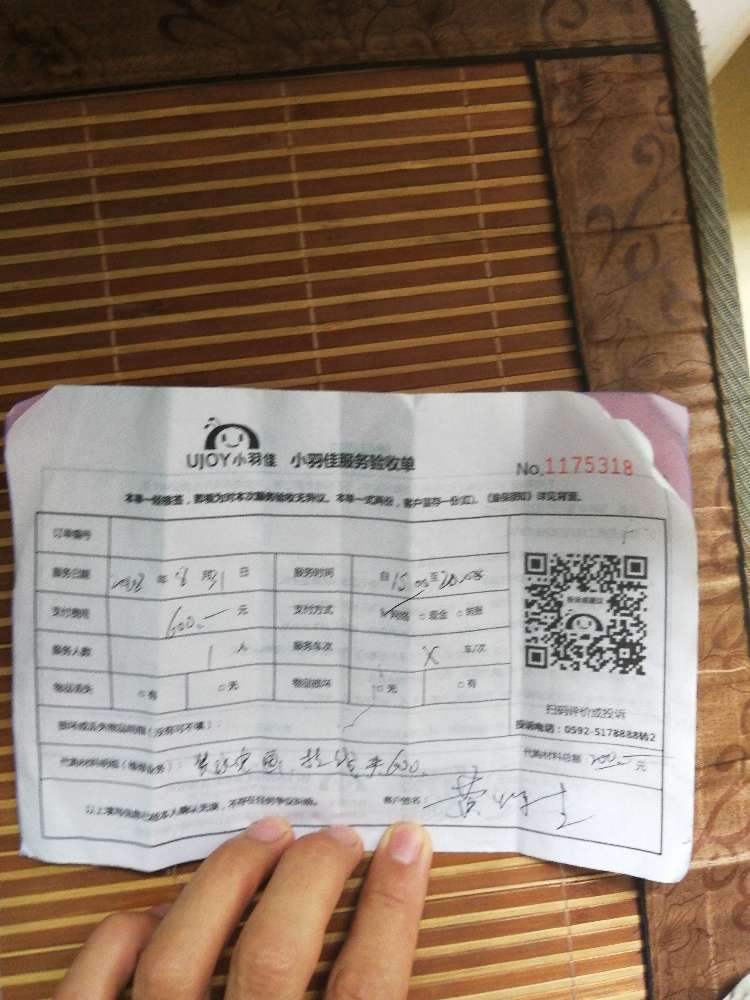 UJOY小羽佳 小羽佳服务验收单 No.1175318
本单一经修签，即视为对本次服务验收无异议。本单一式两份，客户留存一份(红)。《投保须知》详见背面。
订单编号
服务日期 2018 年 8 月 31 日 服务时间 自 15:00 至 20:00
支付费用 600.- 元 支付方式 网络 □现金 □转账
服务人数 1 人 服务车次 X 车/次
物品丢失 □有 □无 物品损坏 □无 □有
扫码评价或投诉
损坏或丢失物品明细（没有可不填）：
投诉电话：0592-5178888转2
代购材料明细（维修业务）： 600. 代购材料总额 元
以上填写信息已经本人确认无误，不存在任何争议纠纷。 客户签名：黄